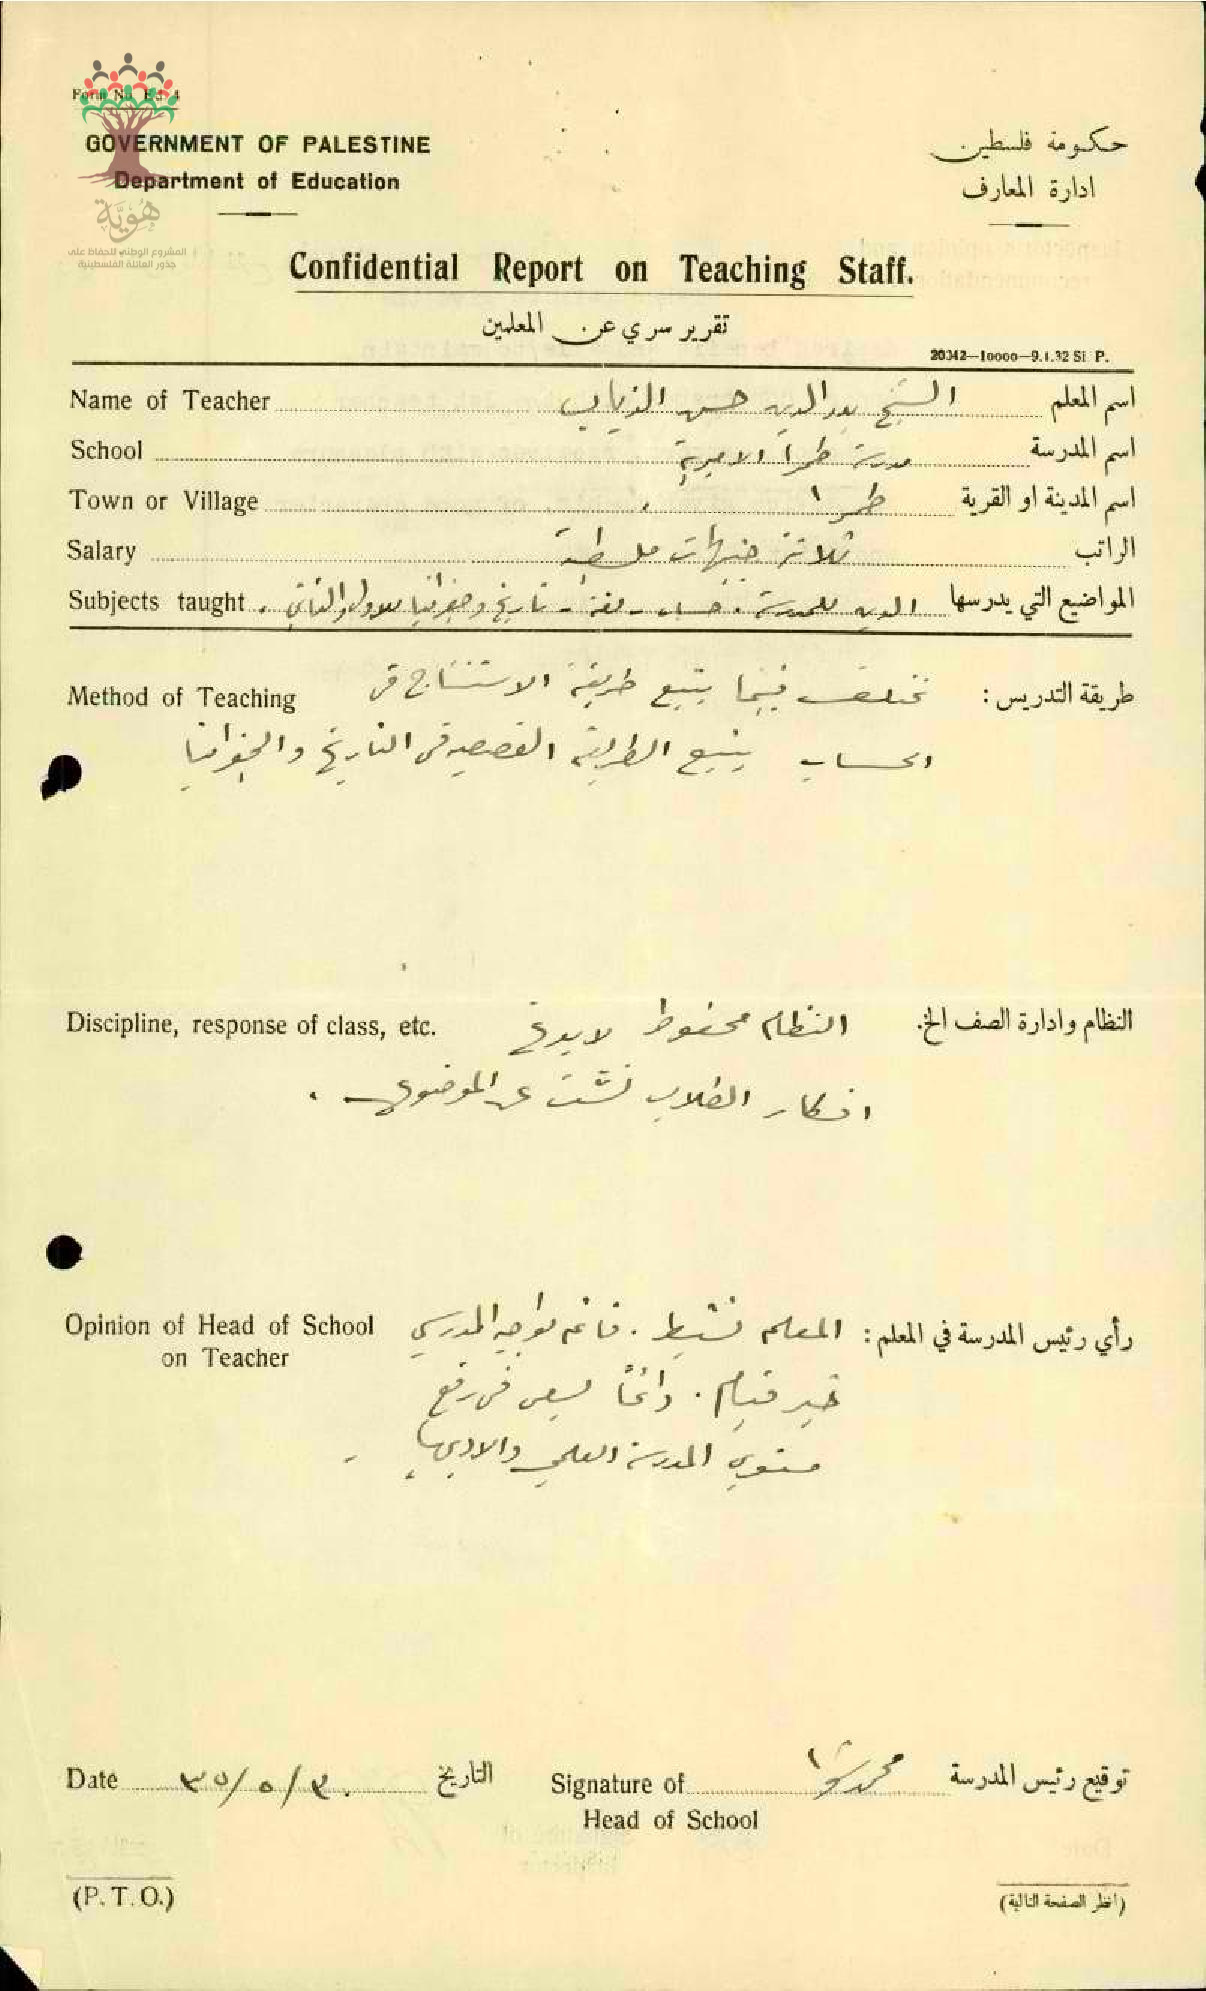 Form No. Ed. 4
GOVERNMENT OF PALESTINE
Department of Education
حكومة فلسطين
ادارة المعارف
هُوِيَّة
المشروع الوطني للحفاظ على
جذور العائلة الفلسطينية
Confidential Report on Teaching Staff.
تقرير سري عن المعلمين
20342—10000—9.1.32 S. P.
Name of Teacher الشيخ بدر الدين حسن اسم المعلم
School مدرسة طمرا الاميرية اسم المدرسة
Town or Village طمرا اسم المدينة او القرية
Salary ثلاثة جنيهات الراتب
Subjects taught الدين للمدرسة . حساب - لغة - تاريخ وجغرافيا للاول والثاني . المواضيع التي يدرسها
Method of Teaching تختلف فبينما يتبع طريقة الاستنتاج في طريقة التدريس :
الحساب يتبع الطريقة القصصية في التاريخ والجغرافيا
Discipline, response of class, etc. النظام محفوظ لا يدع النظام وادارة الصف الخ.
افكار الطلاب تشت عن الموضوع .
Opinion of Head of School المعلم نشيط . قائم بواجبه المدرسي رأي رئيس المدرسة في المعلم :
on Teacher
خير قيام . دائماً يسعى في رفع
مستوى المدرسة العلمي والادبي
Date ٣٠/٥/٣٥ التاريخ
Signature of محمد توقيع رئيس المدرسة
Head of School
(P. T. O.)
(انظر الصفحة التالية)